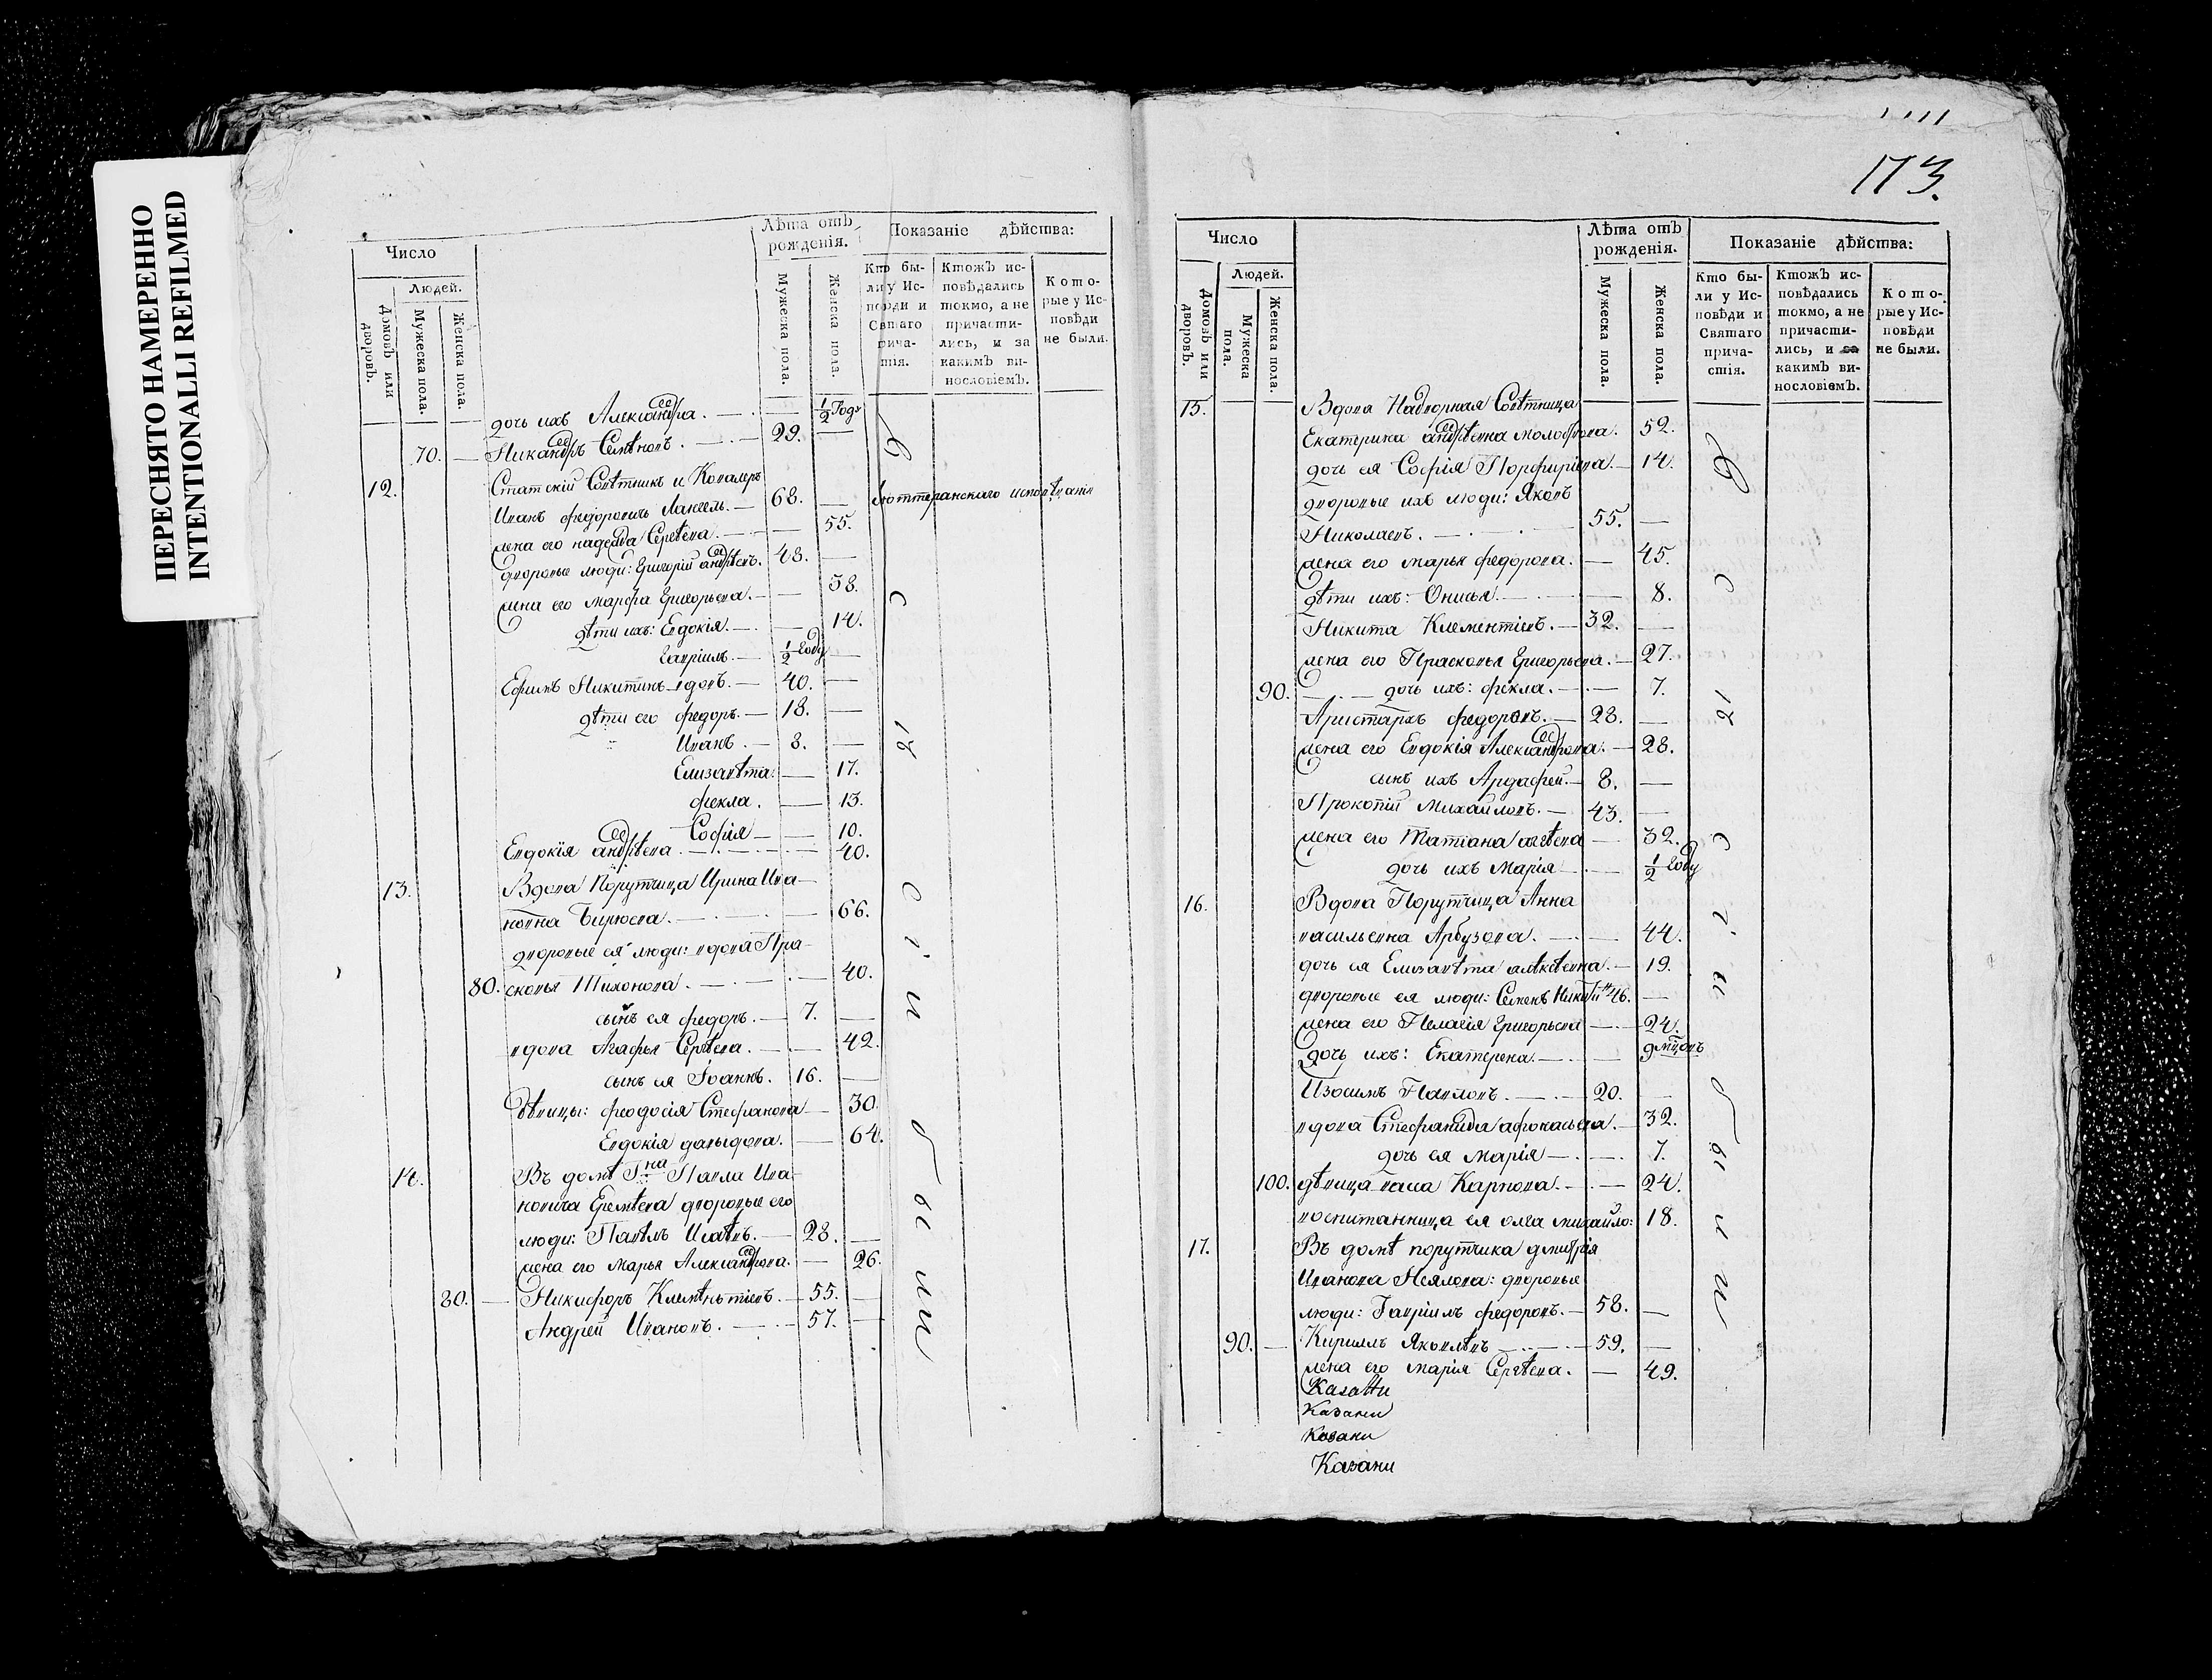 ПЕРЕСНЯТО НАМЕРЕННО
INTENTIONALLI REFILMED
173.
Число
Людей.
Домовъ или дворовъ.
Мужеска пола.
Женска пола.
Лѣта отъ рожденія.
Мужеска пола.
Женска пола.
Показаніе дѣйства:
Кто были у Исповѣди и Святаго причастія.
Ктожъ исповѣдались токмо, а не причастились, и за какимъ винословіемъ.
Которые у Исповѣди не были.
дочь ихъ Александра. — 1/2 Году
70. — Никандръ Семѣновъ. — 29. —
12. Статскій Совѣтникъ и Ковалеръ
Иванъ Федоровичь — 68. — Люттеранскаго исповѣданія
жена его надежда Сергѣева. — 55.
дворовые люди: Григорій андрѣевъ. 48. —
жена его марфа Григорьева. — 38.
дѣти ихъ: Евдокія. — 14.
Гавріилъ. — 1/2 Году —
Ефимъ Никитинъ вдовъ. — 40. —
дѣти его федоръ. — 18. —
Иванъ. — 8. —
Елизавѣта. — 17.
фекла. — 13.
Софія — 10.
Евдокія андрѣева. — 40.
13. Вдова Порутчица Ирина Ива-
новна Бирюева. — 66.
дворовые ея люди: вдова Пра-
80. сковья Тихонова. — 40.
сынъ ея федоръ. — 7. —
вдова Агафья Сергѣева. — 42.
сынъ ея Іоаннъ. 16. —
Дѣвицы: феодосія Стефанова — 30.
Евдокія давыдова. — 64.
14. Въ домѣ Гна Павла Ива-
новича Еремѣева дворовые его
люди: Павѣлъ Исаѣвъ. — 28. —
жена его Марья Александрова. — 26.
80. — Никифоръ Климѣнтіевъ. — 55. —
Андрей Ивановъ. — 57. —
в с ѣ с і и б ы л и
Число
Людей.
Домовъ или дворовъ.
Мужеска пола.
Женска пола.
Лѣта отъ рожденія.
Мужеска пола.
Женска пола.
Показаніе дѣйства:
Кто были у Исповѣди и Святаго причастія.
Ктожъ исповѣдались токмо, а не причастились, и за какимъ винословіемъ.
Которые у Исповѣди не были.
15. Вдова Надворная Совѣтница
Екатерина андрѣевна молоствова. 52.
дочь ея Софія Порфиріева. — 14.
дворовые ихъ люди: Яковъ
Николаевъ. — 55. —
жена его марья федорова. — 45.
Дѣти ихъ: Онисья. — 8.
Никита Клементіевъ. — 32. —
жена его Прасковья Григорьева. — 27.
90. — дочь ихъ: фекла. — 7.
Аристархъ федоровъ. — 28. —
жена его Евдокія Александрова. — 28.
сынъ ихъ — 8. —
Прокопій Михайловъ. — 43. —
жена его Татіана — 32.
дочь ихъ Марія — 1/2 Году
16. Вдова Порутчица Анна
васильевна Арбузова. — 44.
дочь ея Елизавѣта алѣксѣевна. — 19.
дворовые ея люди: Семенъ Никитинъ 46. —
жена его Пелагія Григорьева — 24.
Дочь ихъ: Екатерена. — 9 мцовъ
Изосимъ Павловъ. — 20. —
вдова Стефанида афонасьева. — 32.
дочь ея Марія — 7.
100. дѣвица васса Карпова. — 24.
воспитанница ея олга михайло: 18.
17. Въ домѣ порутчика дмитрія
Иванова Неялова: дворовые
люди: Гавріилъ федоровъ. — 58. —
90. — Кириллъ Яковлѣвъ — 59. —
жена его Марія Сергѣева. — 49.
Казани
Казани
Казани
Казани
в с ѣ с і и б ы л и